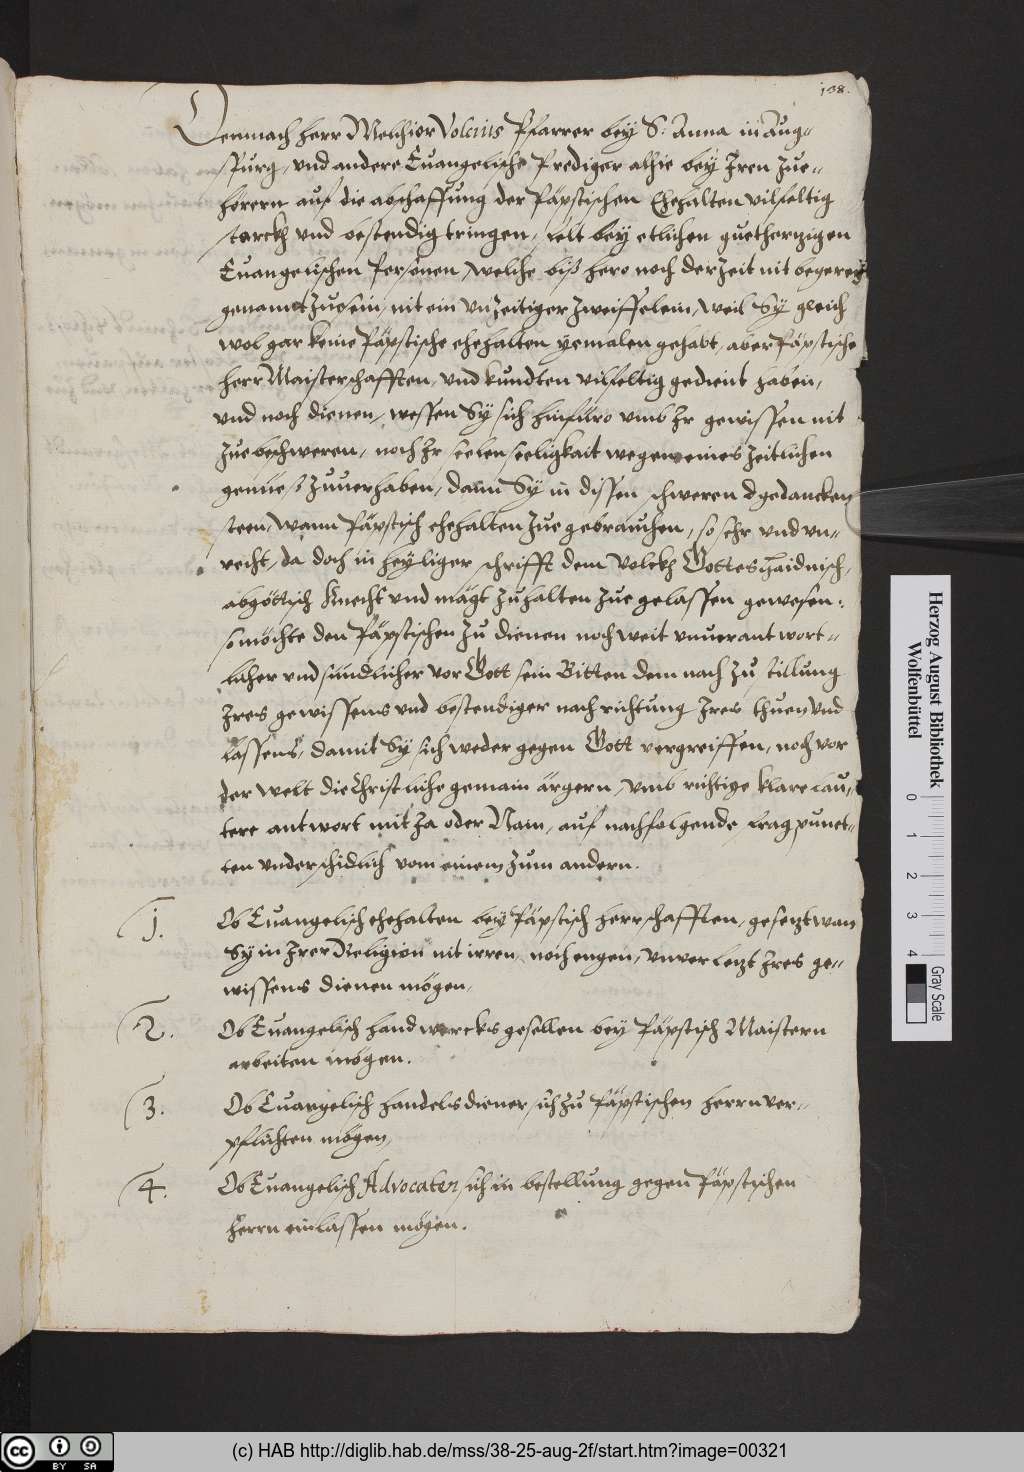 138.
Demnach herr Melchior Volcius Pfarrer bey S: Anna in Aug-
spurg, vnd andere Euangelische Prediger alhie bey Iren Zue-
hörern auf die abschaffung der Päpstischen Ehehalten vilfeltig
starckh vnd bestendig tringen, felt bey etlichen guethertzigen
Euangelischen Personen, welche biß hero noch der Zeit nit begeren
genannt Zue sein, nit ein vnzeitiger Zweiffel ein, weil Sy gleich
wol gar keine Päpstische ehehalten yemalen gehabt, aber Päpstische
herr Maisterschafften, vnd kundten vilfeltig gedient haben,
vnd noch dienen, wessen Sy sich hinfüro vmb Ir gewissen nit
Zue beschweren, noch Ir seelen seeligkait wegen eines Zeitlichen
genieß Zuuerhaben, dann Sy in dissen schweren gedancken
steen, wann Päpstisch ehehalten Zue gebrauchen, so sehr vnd vn-
recht, da doch in heyliger schrifft dem Volckh Gottes Haidnisch,
abgöttisch Knecht vnd mägt Zuhalten Zue gelassen gewesen,
so möchte den Päpstischen Zu dienen noch weit vnuerantwort-
licher vnd sündlicher vor Gott sein Bitten dem nach Zu stillung
Ires gewissens vnd bestendiger nachrichtung Ires thuen vnd
lassens, damit Sy sich weder gegen Gott vergreiffen, noch vor
der welt die Christliche gemain ärgern, vmb richtige klare lau-
tere antwort mit Ja oder Nain, auf nachfolgende fragpunct-
ten vnderschidlich vom einem Zum andern.
1. Ob Euangelisch ehehalten bey Päpstisch herrschafften, gesetzt wan
Sy in Irer Religion nit irren, noch engen, vnuerletzt Ires ge-
wissens dienen mögen,
2. Ob Euangelisch handwercksgesellen bey Päpstisch Maistern
arbeiten mögen.
3. Ob Euangelisch handelsdiener sich Zu Päpstischen herrn ver-
pflichten mögen,
4. Ob Euangelisch Advocaten sich in bestellung gegen Päpstischen
herrn einlassen mögen.
Herzog August Bibliothek
Wolfenbüttel
0 1 2 3 4
Gray Scale
cc BY SA
(c) HAB http://diglib.hab.de/mss/38-25-aug-2f/start.htm?image=00321